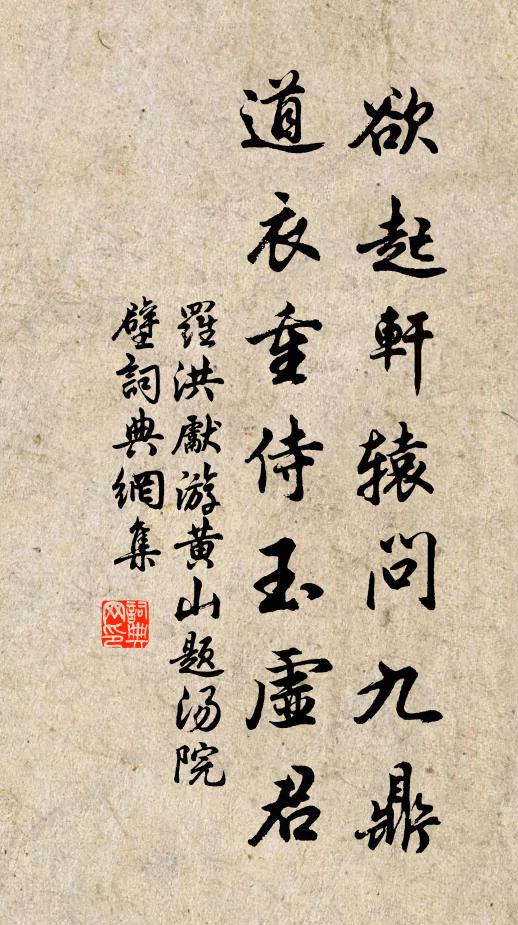 欲起軒辕問九鼎
道衣重侍玉虛君
羅洪獻游黄山題湯院
壁詞典網集
詞典網印